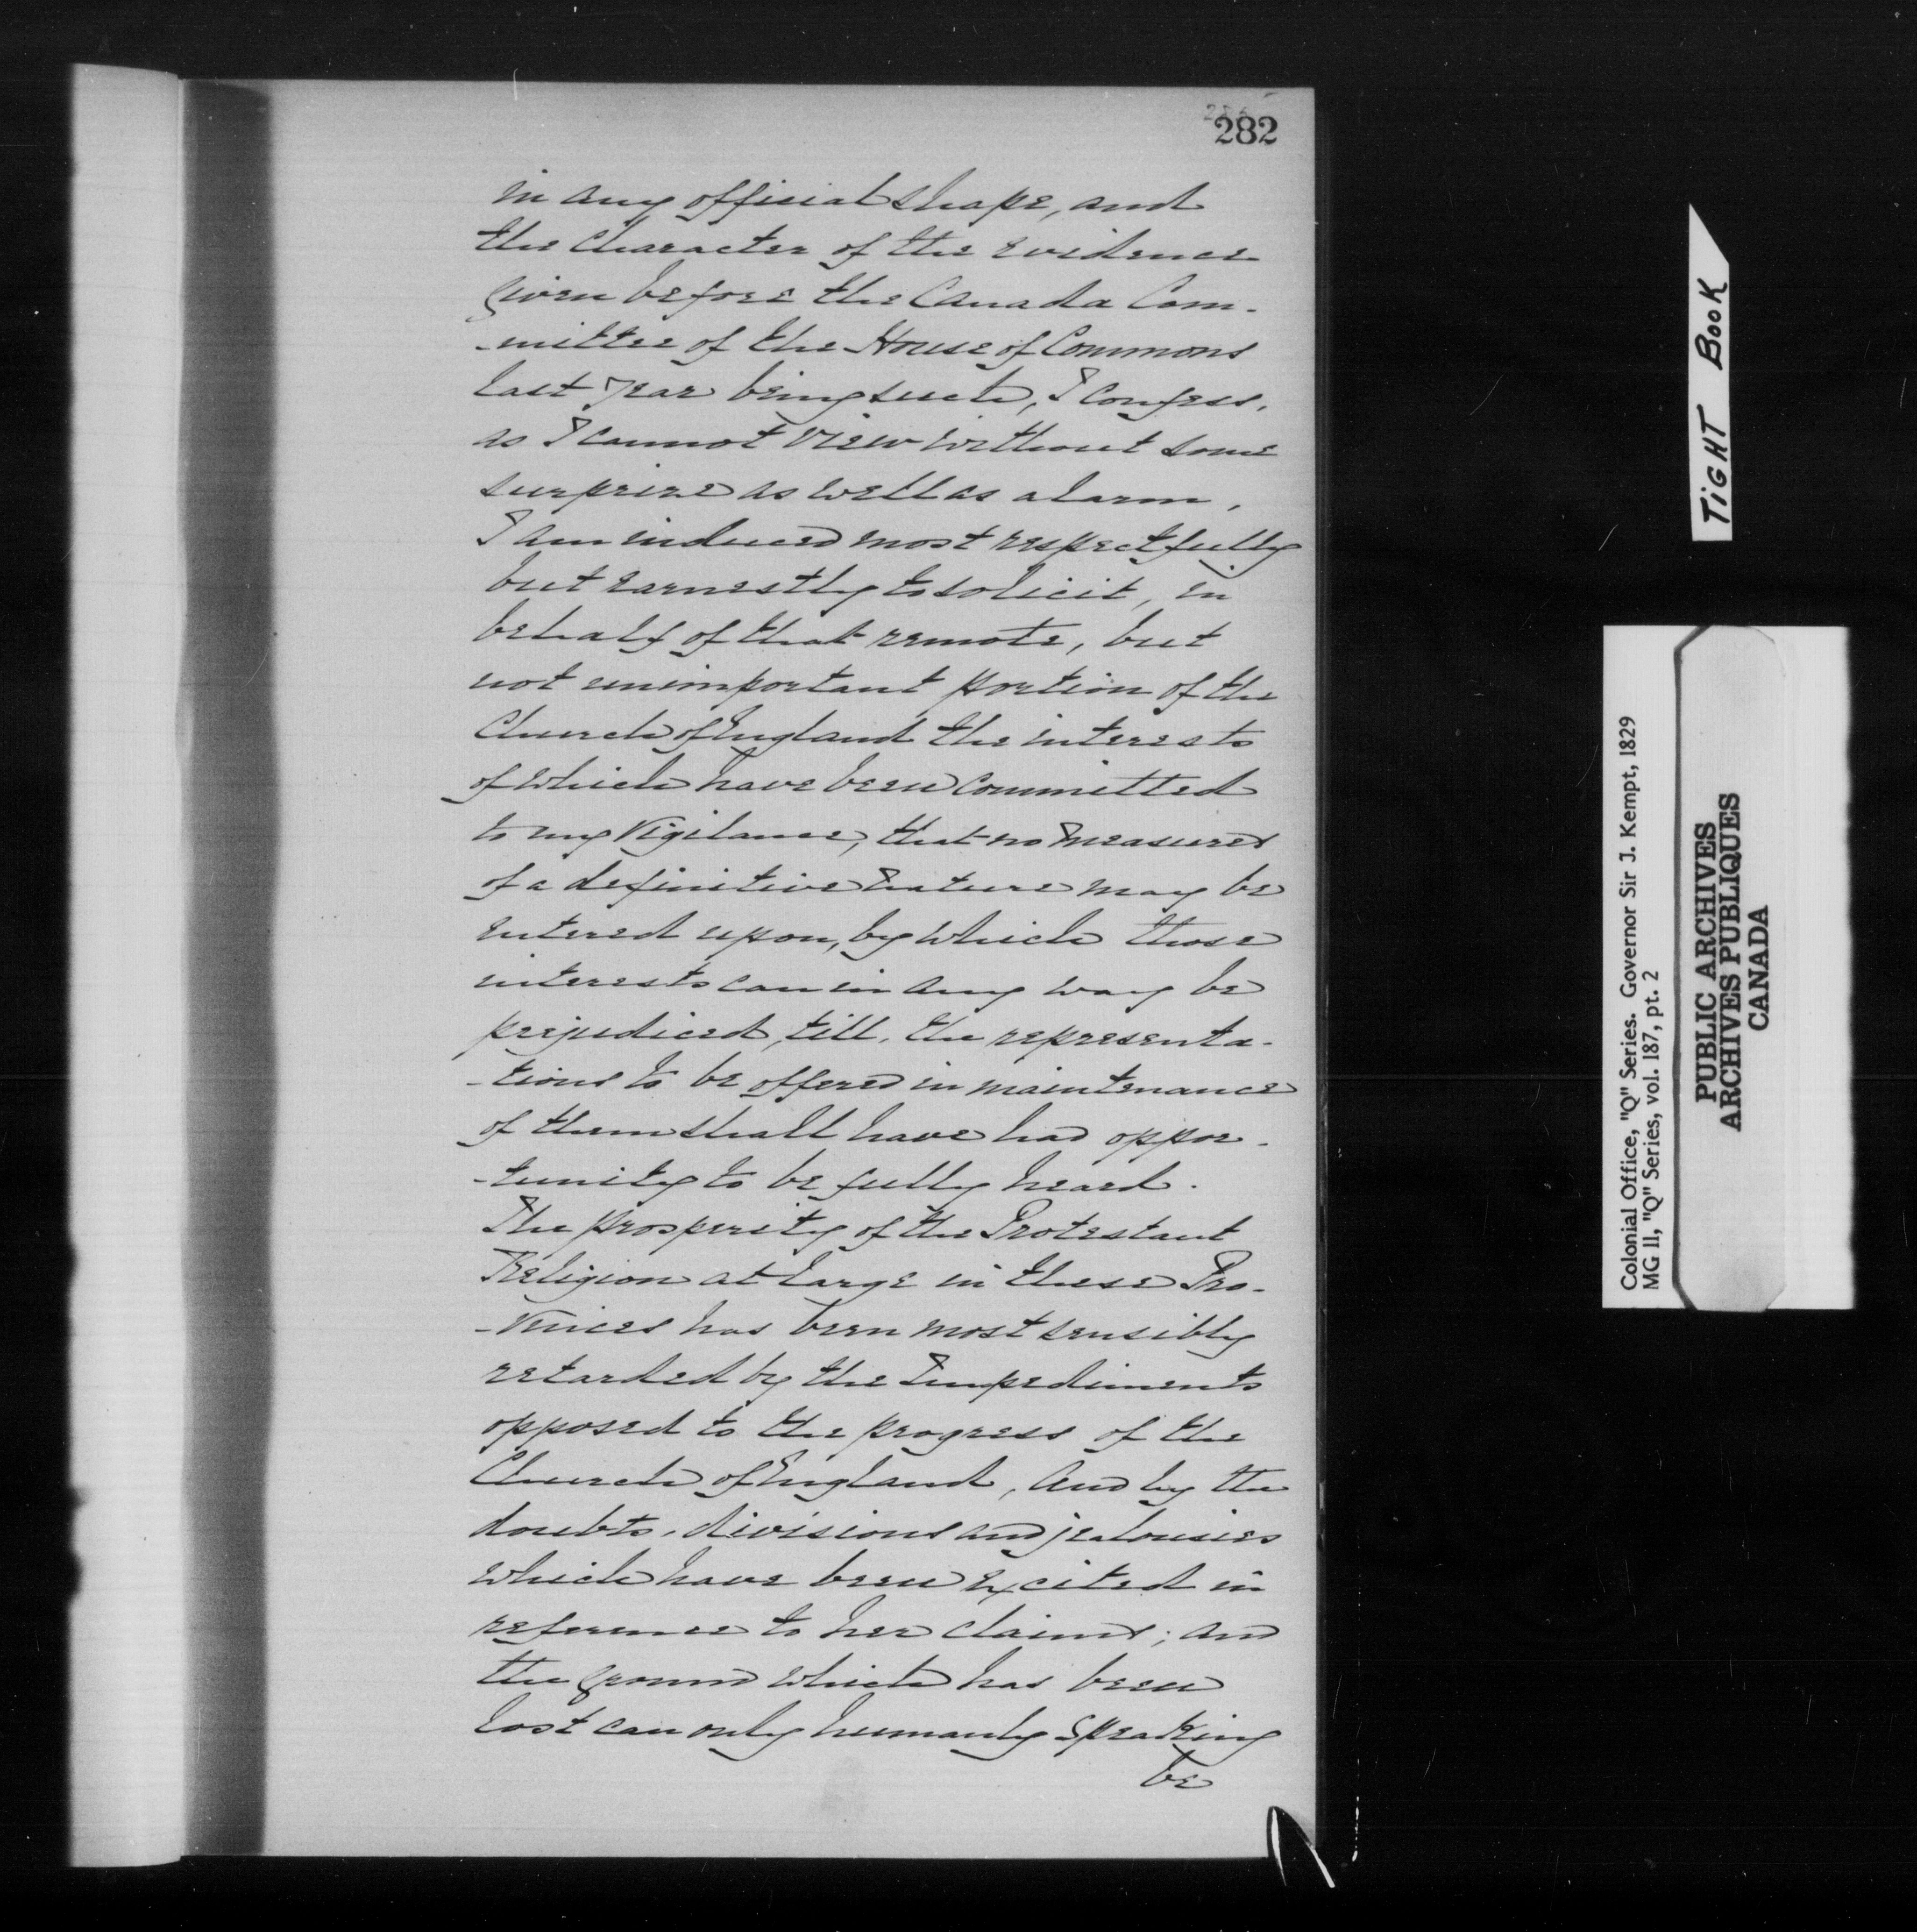 282
in any official shape, and
the Character of the evidence
given before the Canada Com-
-mittee of the House of Commons
last year being such, I confess,
as I cannot view without some
surprize as well as alarm,
I am induced most respectfully
but earnestly to solicit, in
behalf of that remote, but
not unimportant portion of the
Church of England the interests
of which have been committed
to my Vigilance, that no measures
of a definitive nature may be
entered upon, by which those
interests can in any way be
prejudiced, till, the representa-
-tions to be offered in maintenance
of them shall have had oppor-
-tunity to be fully heard.
The prosperity of the Protestant
Religion at large in these Pro-
-vinces has been most sensibly
retarded by the Impediments
opposed to the progress of the
Church of England, and by the
doubts, divisions and jealousies
which have been excited in
reference to her claims; and
the ground which has been
lost can only humanly speaking
be
TIGHT BOOK
Colonial Office, "Q" Series. Governor Sir J. Kempt, 1829
MG 11, "Q" Series, vol. 187, pt. 2
PUBLIC ARCHIVES
ARCHIVES PUBLIQUES
CANADA